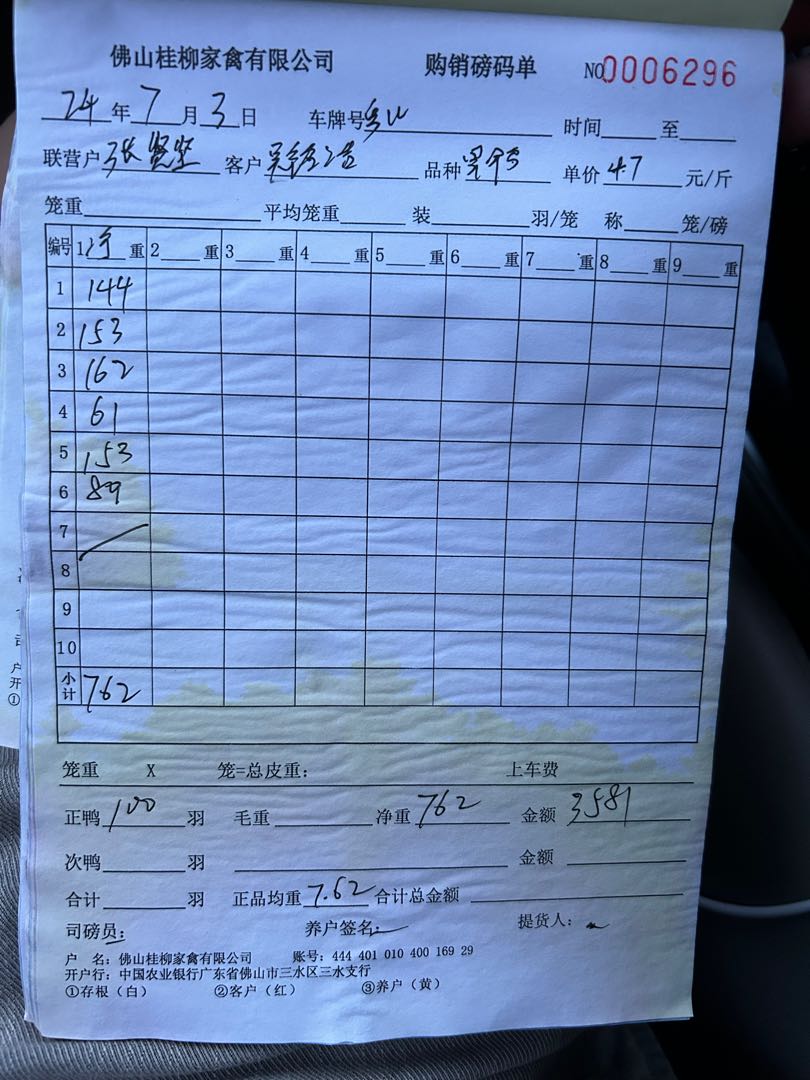 佛山桂柳家禽有限公司 购销磅码单 NO 0006296
24年7月3日 车牌号 时间 至
联营户 张贤坚 客户 品种 单价 4.7 元/斤
笼重 平均笼重 装 羽/笼 称 笼/磅
编号 1 净 重 2 重 3 重 4 重 5 重 6 重 7 重 8 重 9 重
1 144
2 153
3 162
4 61
5 153
6 89
7
8
9
10
小计 762
笼重 X 笼=总皮重: 上车费
正鸭 100 羽 毛重 净重 762 金额 3581
次鸭 羽 金额
合计 羽 正品均重 7.62 合计总金额
司磅员: 养户签名: 提货人:
户 名: 佛山桂柳家禽有限公司 账号: 444 401 010 400 169 29
开户行: 中国农业银行广东省佛山市三水区三水支行
①存根(白) ②客户(红) ③养户(黄)